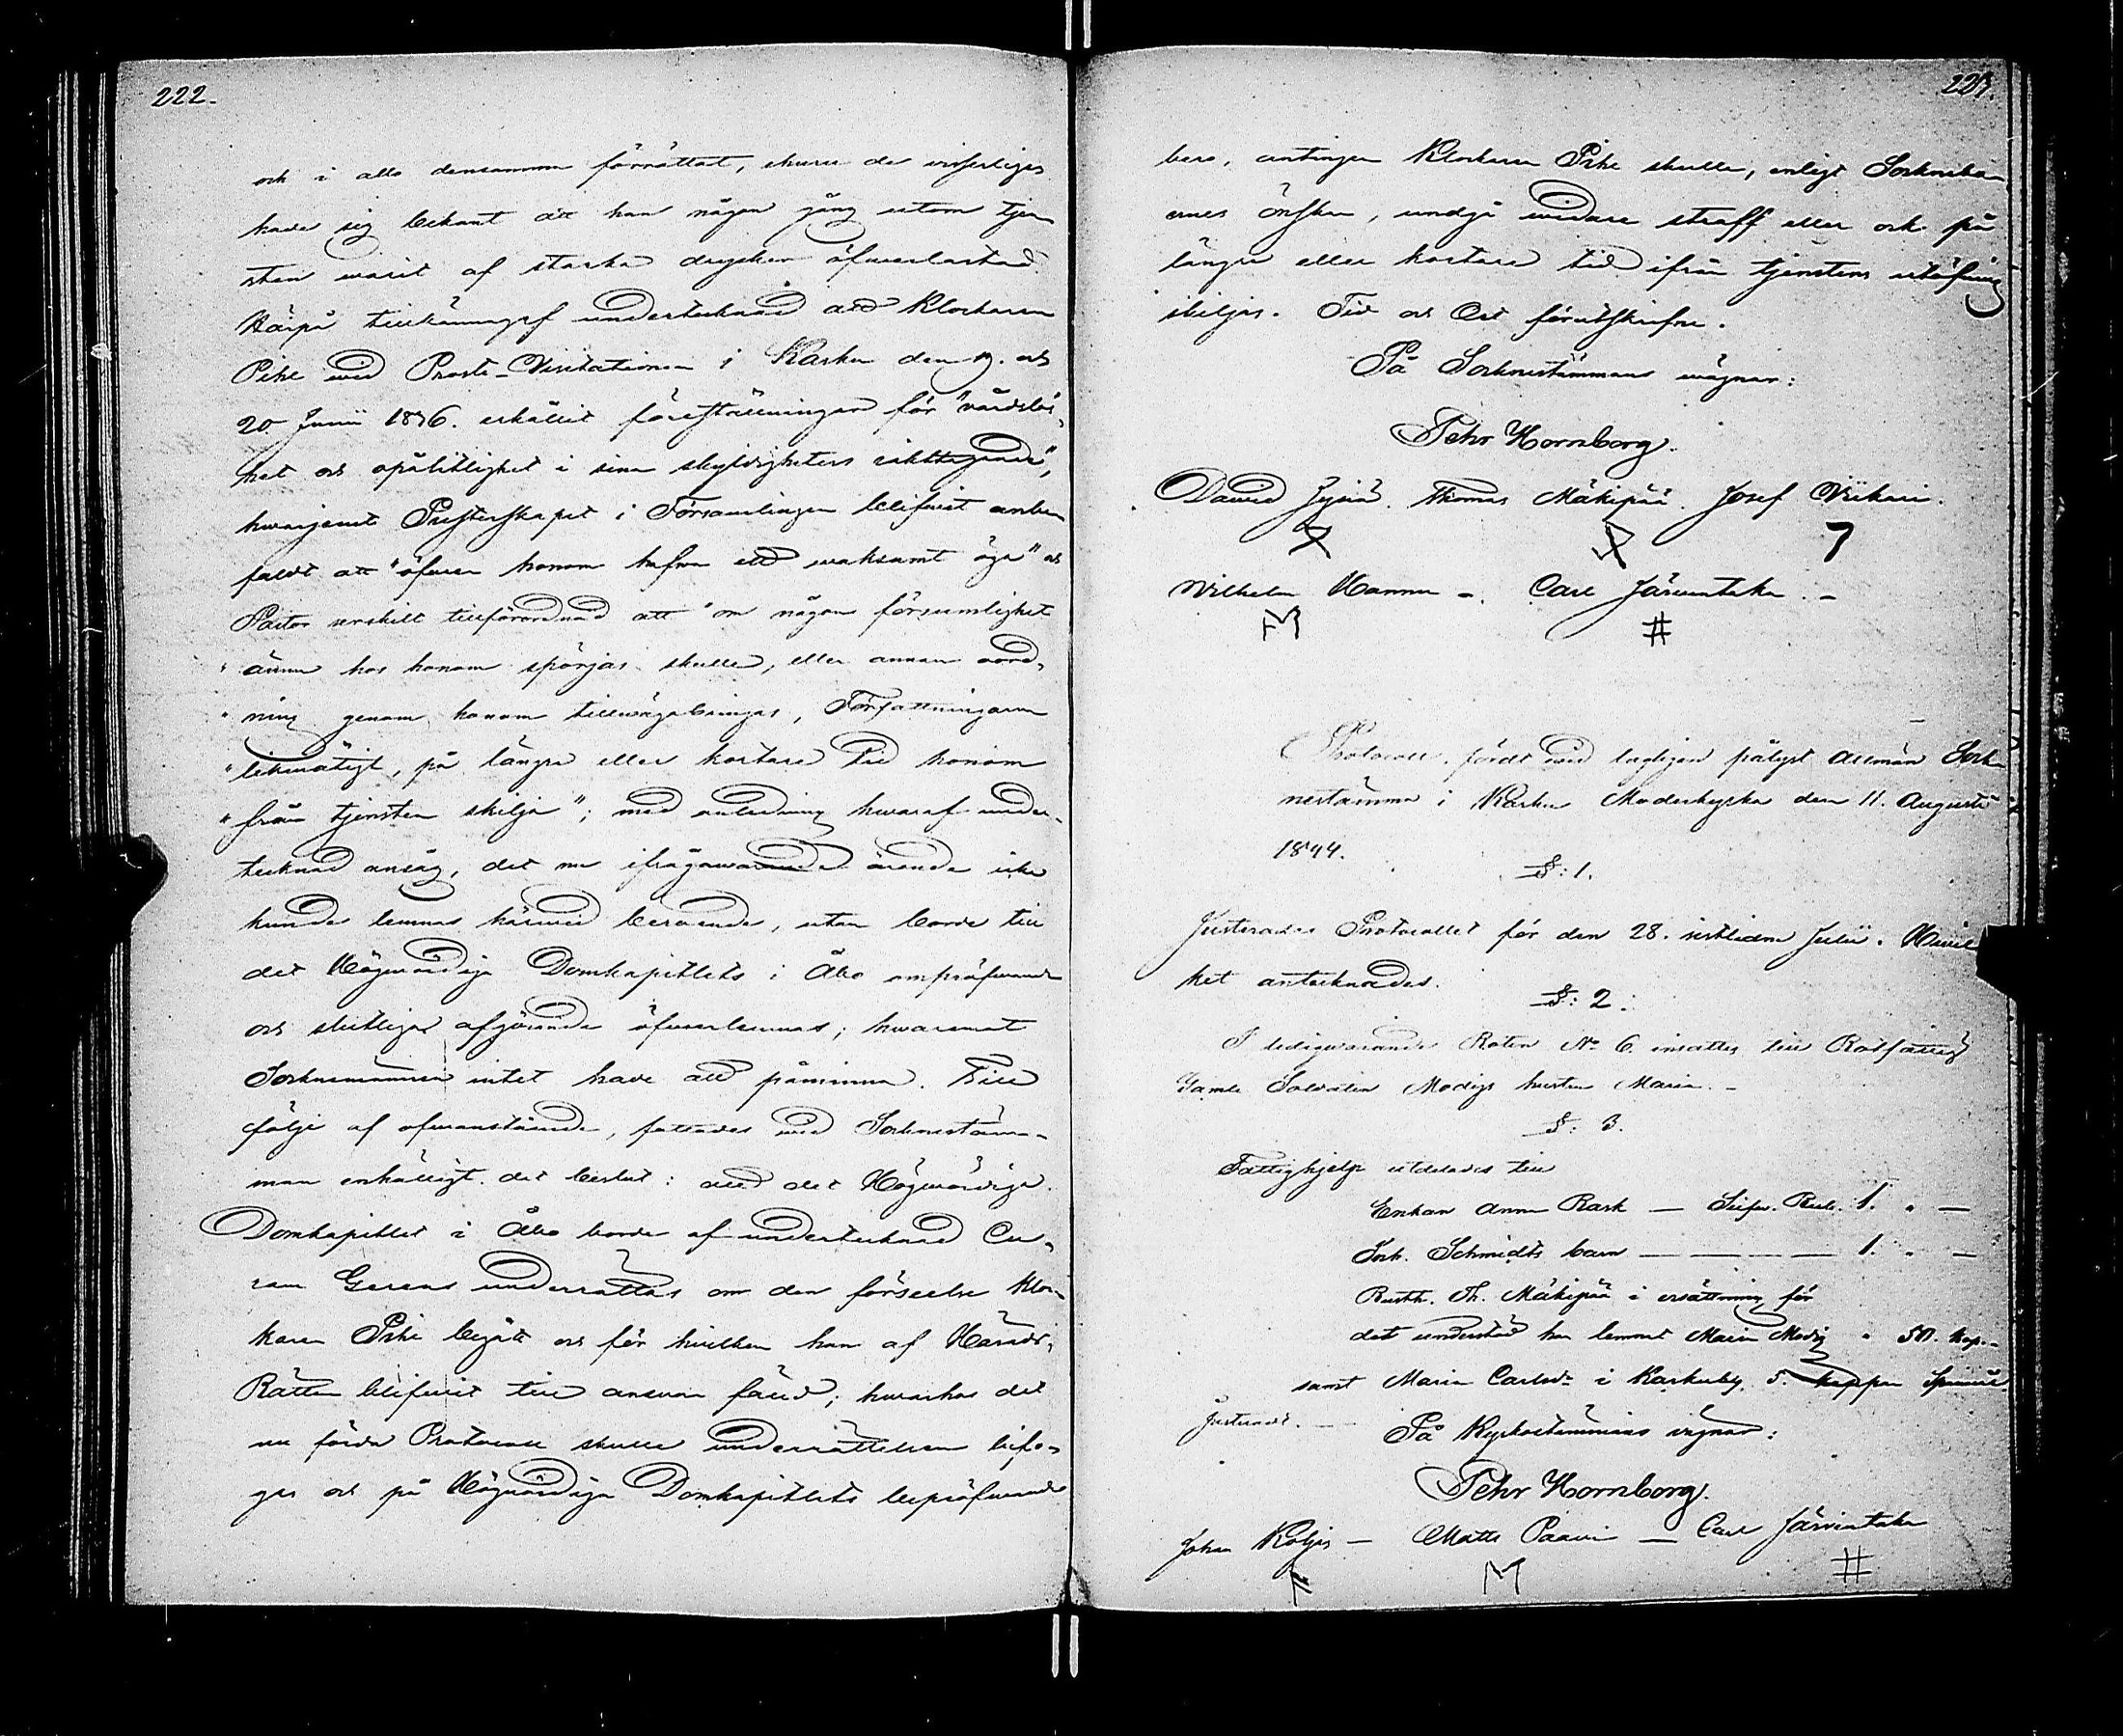 222.
och i allo densamma förrättat, ehuru de visserligen
hade sig bekant att han någon gång utom tjen
sten warit af starka drycker öfwerlastad.
Härpå tillkännagaf undertecknad att Klockaren
Pihl wid Prosts-Visitationen i Karku den 19. och
20. Junii 1836. erhållit föreställningar för "vårdslös-
het och opålitlighet i sina skyldigheters iakttagande",
hwarjemte Presterskapet i Församlingen blifwit anbe
faldt att "öfwer honom hafwa ett waksamt öga" och
Pastor serskilt tillförordnad att "om någon försumlighet
" ännu hos honom spörjas skulle, eller annan oord-
" ning genom honom tillwägabringas, Författningarna
" likmätigt, på längre eller kortare tid honom
" från tjensten skilja"; med anledning hwaraf under-
tecknad ansåg, det nu ifrågawarande ärende icke
kunde lemnas härwid beroende, utan borde till
det Högwördiga Domkapitlets i Åbo ompröfwande
och slutliga afgörande öfwerlemnas; hwaremot
Socknemännen intet hade att påminna. Till
följe af ofwanstående, fattades wid Sockenstäm-
man enhälligt det beslut: att det Högwördiga
Domkapitlet i Åbo borde af undertecknad Cu-
ram Gerens underrättas om den förseelse Kloc-
karen Pihl begått och för hwilken han af Härads-
Rätten blifwit till answar fäld; hwarhos det
nu förda Protocoll skulle underrättelsen bifo-
gas och på Högwördiga Domkapitlets bepröfwande
223.
bero, antingen Klockaren Pihl skulle, enligt Socknebo-
ernes önskan, undgå widare straff eller och på
längre eller kortare tid ifrån tjenstens utöfning
skiljas. Tid och Ort förutskrifne.
På Sockenstämmans wägnar:
Pehr Hornborg.
David Jyrä. Thomas Mäkipää. Josef Wiikari.
Wilhelm Hannu -. Carl Järwentaka. -
Protocoll, fördt wid lagligen pålyst allmän Sock-
nestämma i Karku Moderkyrka den 11. Augusti
1844.
§: 1.
Justerades Protocollet för den 28. sistlidne Julii. Hwil
ket antecknades.
§: 2.
I ledigwarande Roten No 6. insattes till Rotfattig
Gamle Soldaten Modigs hustru Maria. -
§: 3.
Fattighjelp utdelades till
Enkan Anna Rask — Silfw. Rub. 1. " —
Joh. Schmidts barn — — — — 1. " —
Rusth. Th. Mäkipää i ersättning för
det understöd han lemnat Maria Modig " 50. kop. -
samt Maria Carlsdr i Karkuby, 5. kappar Spanmål.
Justeradt. —
På Kyrkostämmans wägnar:
Pehr Hornborg.
Johan Koljis — Matts Paawi — Carl Järwentaka